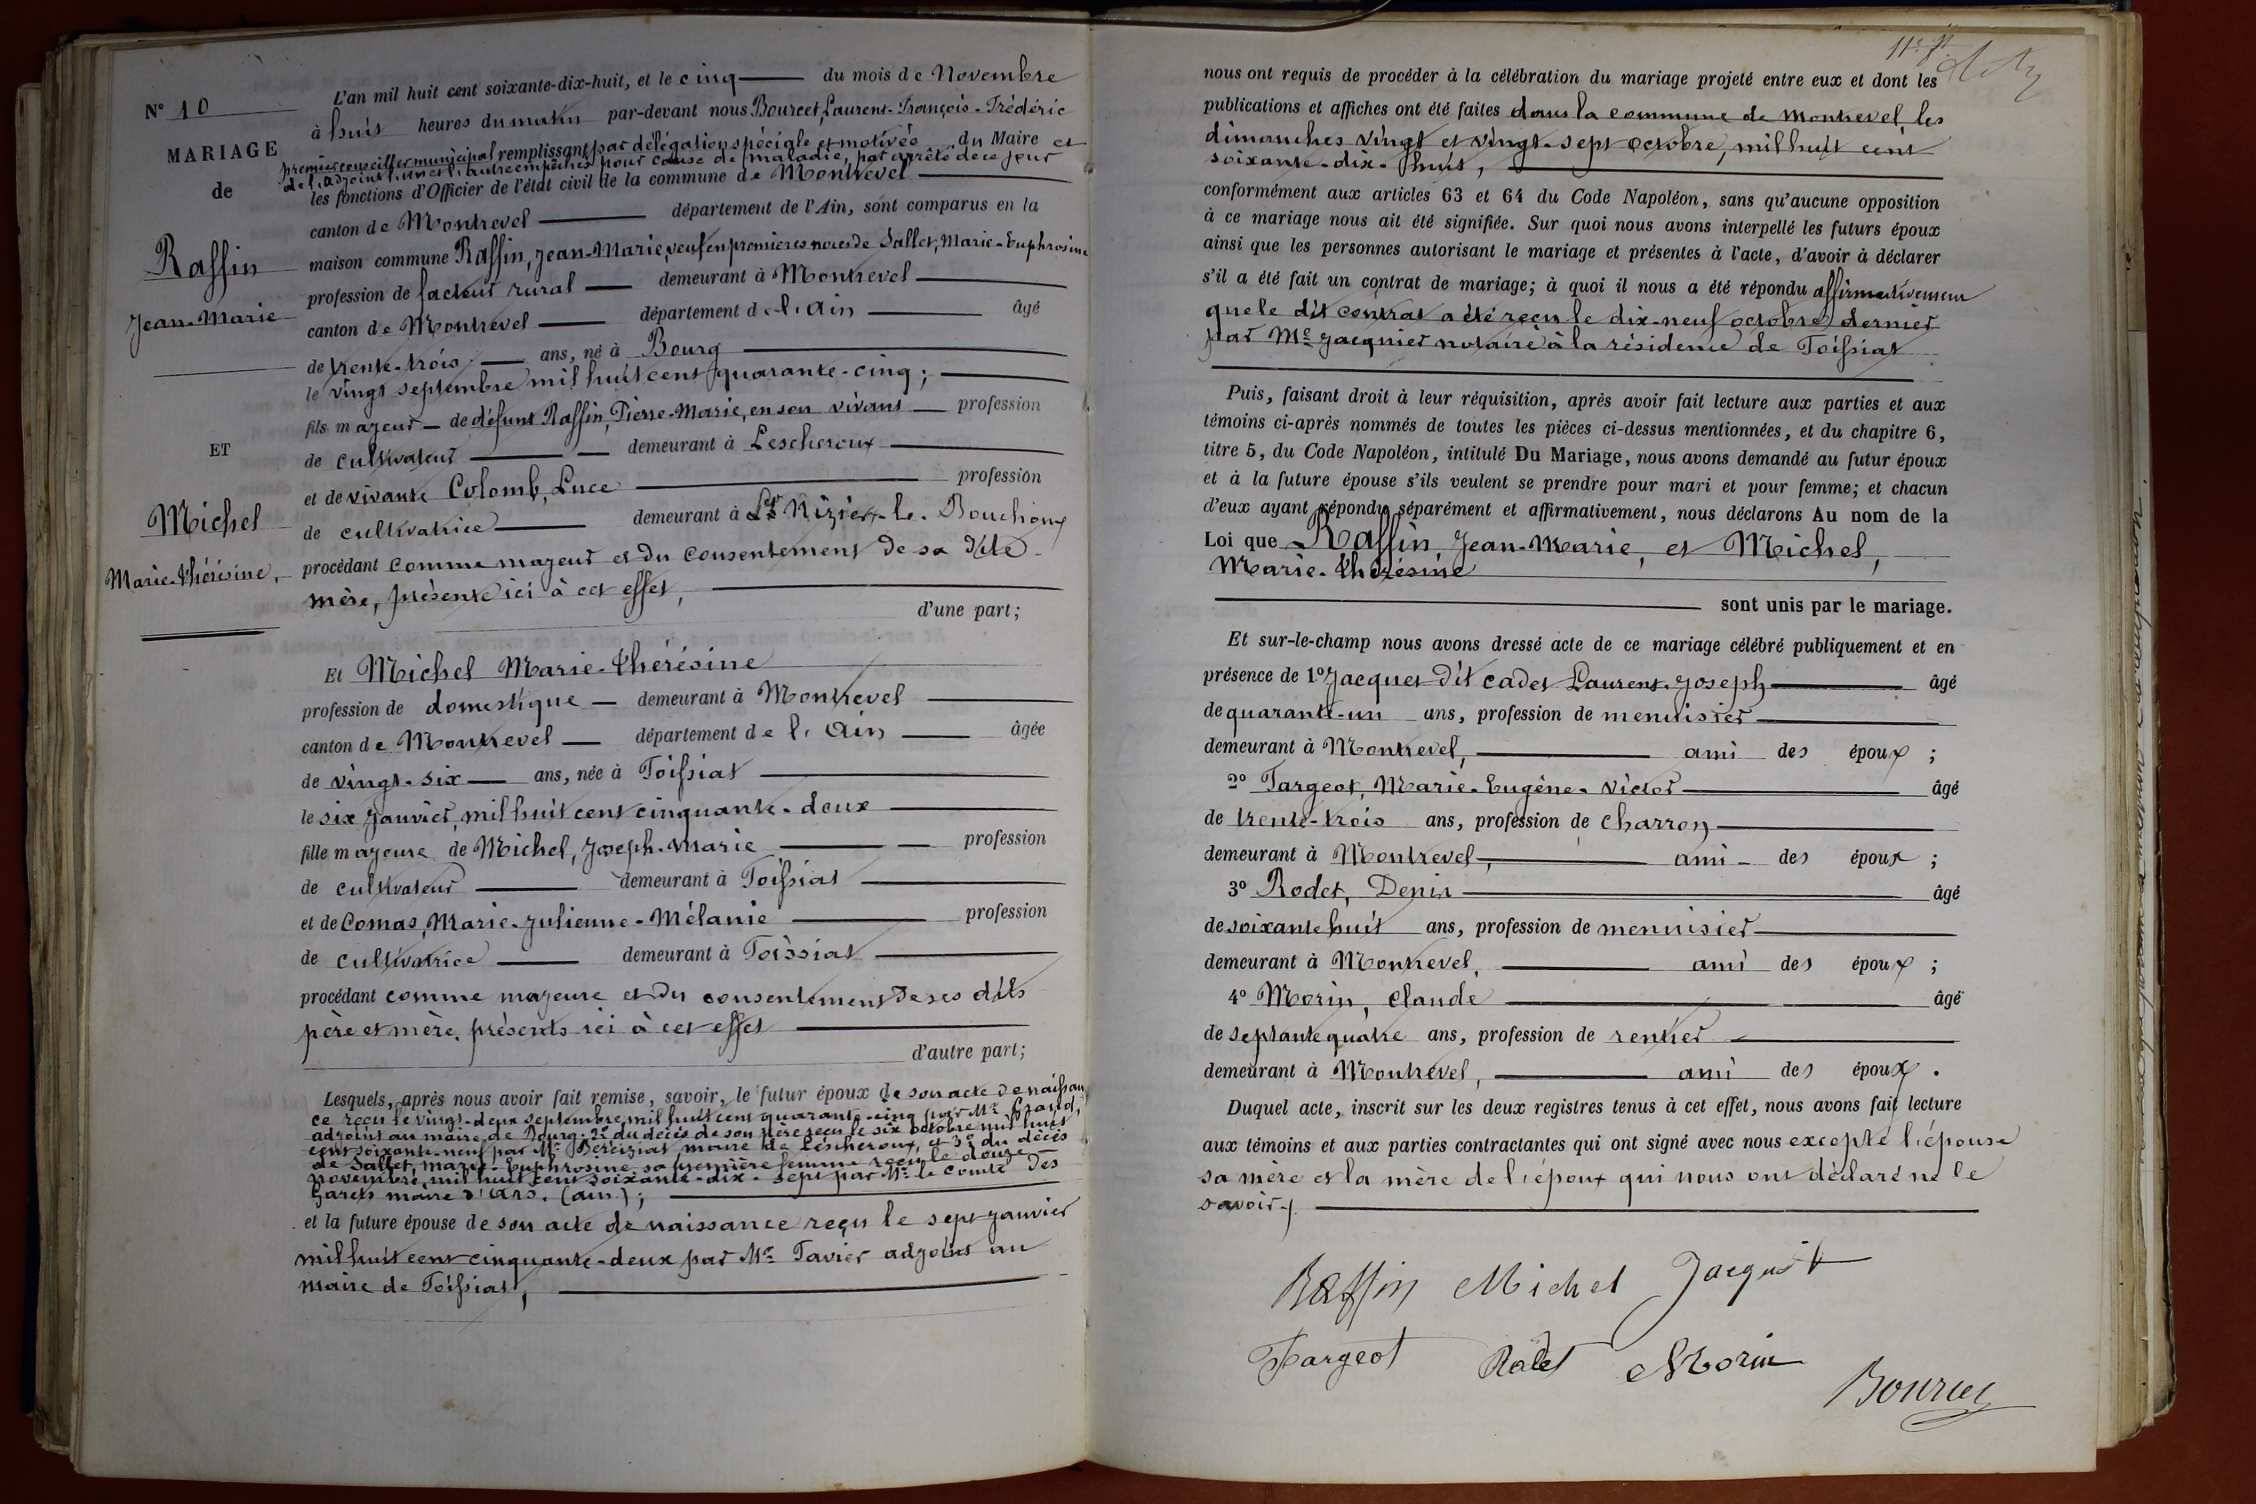 N° 10
MARIAGE
de
Raffin
Jean-Marie
ET
Michel
Marie-Thérésine,
L'an mil huit cent soixante-dix-huit, et le cinq du mois de Novembre
à huit heures du matin par-devant nous Bourcet, Laurent-François-Frédéric
premier conseiller municipal remplissant par délégation spéciale et motivée du Maire et
de l'adjoint l'un et l'autre empêchés pour cause de maladie, par arrêté de ce jour
les fonctions d'Officier de l'état civil de la commune de Montrevel
canton de Montrevel département de l'Ain, sont comparus en la
maison commune Raffin, Jean-Marie, veuf en premieres noces de Sallet, Marie-Euphrosine
profession de facteur rural demeurant à Montrevel
canton de Montrevel département de l'Ain âgé
de trente-trois ans, né à Bourg
le vingt septembre mil huit cent quarante-cinq ;
fils majeur de défunt Raffin, Pierre-Marie, en son vivant profession
de cultivateur demeurant à Lescheroux
et de vivante Colomb, Luce profession
de cultivatrice demeurant à St Nizier-le-Bouchoux
procédant comme majeur et du consentement de sa dite
mère, présente ici à cet effet,
d'une part;
Et Michel Marie-Thérésine
profession de domestique demeurant à Montrevel
canton de Montrevel département de l'Ain âgée
de vingt-six ans, née à Foissiat
le six janvier, mil huit cent cinquante-deux
fille majeure de Michel, Joseph-Marie profession
de cultivateur demeurant à Foissiat
et de Comas, Marie-Julienne-Mélanie profession
de cultivatrice demeurant à Foissiat
procédant comme majeure et du consentement de ses dits
père et mère, présents ici à cet effet
d'autre part;
Lesquels, après nous avoir fait remise, savoir, le futur époux de son acte de naissan
ce reçu le vingt-deux septembre mil huit cent quarante-cinq par Mr Grand,
adjoint au maire de Bourg. 2° du décès de son père reçu le six octobre mil huit
cent soixante-neuf par Mr Béréiziat maire de Lescheroux, et 3° du décès
de Sallet, Marie-Euphrosine sa première femme reçu le douze
novembre, mil huit cent soixante-dix-sept par Mr le comte des
Garets maire d'Ars. (Ain) ;
et la future épouse de son acte de naissance reçu le sept janvier
mil huit cent cinquante-deux par Mr Favier adjoint au
maire de Foissiat,
nous ont requis de procéder à la célébration du mariage projeté entre eux et dont les
publications et affiches ont été faites dans la commune de Montrevel, les
dimanches vingt et vingt-sept octobre, mil huit cent
soixante-dix-huit,
conformément aux articles 63 et 64 du Code Napoléon, sans qu'aucune opposition
à ce mariage nous ait été signifiée. Sur quoi nous avons interpellé les futurs époux
ainsi que les personnes autorisant le mariage et présentes à l'acte, d'avoir à déclarer
s'il a été fait un contrat de mariage; à quoi il nous a été répondu affirmativement
que le dit contrat a été reçu le dix-neuf octobre dernier
par Me Jacquier notaire à la résidence de Foissiat
Puis, faisant droit à leur réquisition, après avoir fait lecture aux parties et aux
témoins ci-après nommés de toutes les pièces ci-dessus mentionnées, et du chapitre 6,
titre 5, du Code Napoléon, intitulé Du Mariage, nous avons demandé au futur époux
et à la future épouse s'ils veulent se prendre pour mari et pour femme; et chacun
d'eux ayant répondu séparément et affirmativement, nous déclarons Au nom de la
Loi que Raffin, Jean-Marie, et Michel,
Marie-Thérésine
sont unis par le mariage.
Et sur-le-champ nous avons dressé acte de ce mariage célébré publiquement et en
présence de 1° Jacquet dit cadet Laurent-Joseph âgé
de quarante-un ans, profession de menuisier
demeurant à Montrevel, ami des époux ;
2° Fargeot, Marie-Eugène-Victor âgé
de trente-trois ans, profession de charron
demeurant à Montrevel, ami des époux ;
3° Rodet, Denis âgé
de soixante huit ans, profession de menuisier
demeurant à Montrevel, ami des époux ;
4° Morin, Claude âgé
de septante quatre ans, profession de rentier
demeurant à Montrevel, ami des époux.
Duquel acte, inscrit sur les deux registres tenus à cet effet, nous avons fait lecture
aux témoins et aux parties contractantes qui ont signé avec nous excepté l'épouse
sa mère et la mère de l'époux qui nous ont déclaré ne le
savoir.
Raffin Michel Jacquet
Fargeot Rodet Morin
Bourcet